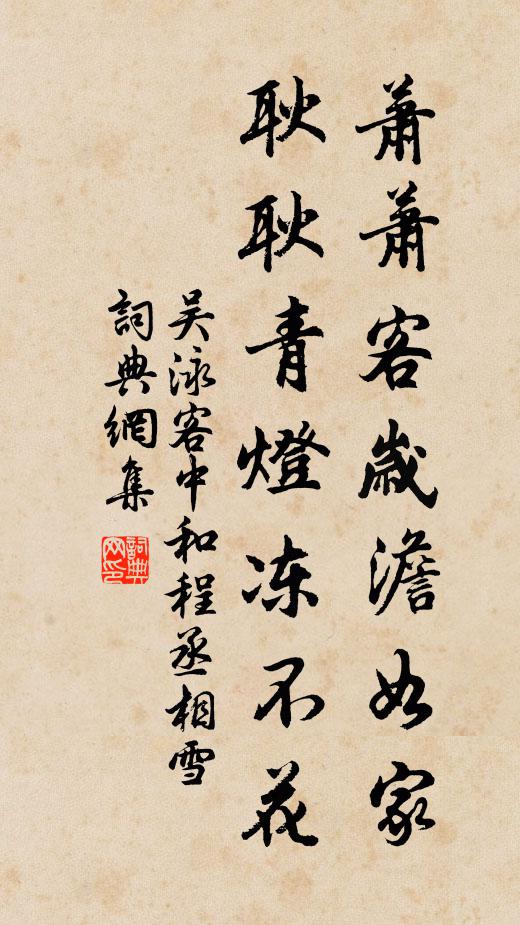 蕭蕭客歲澹如家
耿耿青燈冻不花
吴泳客中和程丞相雪
詞典網集
詞典网印